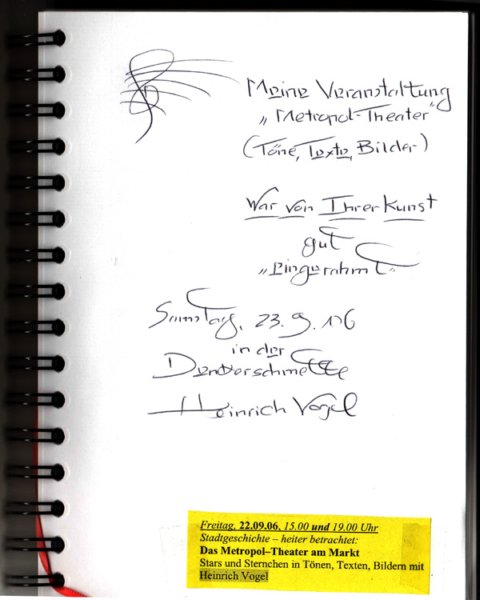 Meine Veranstaltung
„Metropol-Theater"
(Töne, Texte, Bilder)
War von Ihrer Kunst
gut
„eingerahmt"
Samstag, 23.9.06
in der
Heinrich Vogel
Freitag, 22.09.06, 15.00 und 19.00 Uhr
Stadtgeschichte – heiter betrachtet:
Das Metropol–Theater am Markt
Stars und Sternchen in Tönen, Texten, Bildern mit
Heinrich Vogel